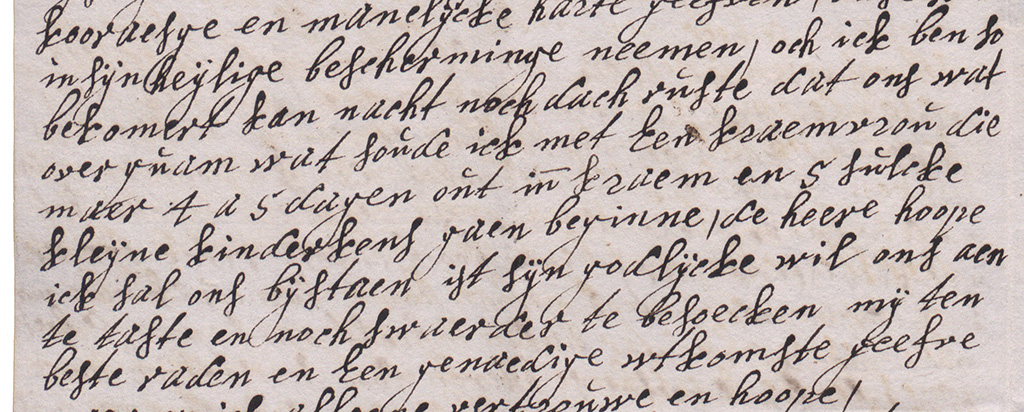 kooraesge en manelijcke harte geefven,
in sijn heylige bescherminge neemen, och ick ben so
bekomert kan nacht noch dach ruste dat ons wat
over quam wat soude ick met een kraemvrou die
maer 4 a 5 dagen out in kraem en 5 sulcke
kleyne kinderkens gaen beginne, de heere hoope
ick sal ons bijstaen ist sijn godlijcke wil ons aen
te taste en noch swaerder te besoecken mij ten
beste raden en een genaedige wtkomste geefve
ick alleene vertrouwe en hoope,